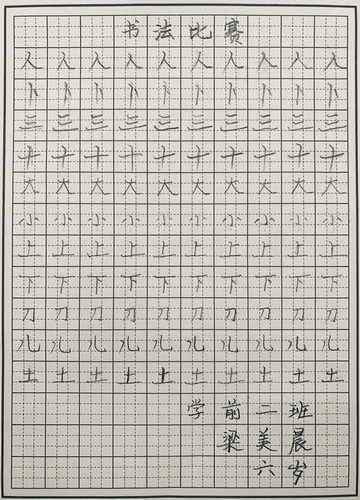 书法比赛
人人人人人人人人人人
卜卜卜卜卜卜卜卜卜卜
三三三三三三三三三三
十十十十十十十十十十
大大大大大大大大大大
小小小小小小小小小小
上上上上上上上上上上
下下下下下下下下下下
刀刀刀刀刀刀刀刀刀刀
儿儿儿儿儿儿儿儿儿儿
土土土土土土土土土土
学前二班
梁美晨
六岁